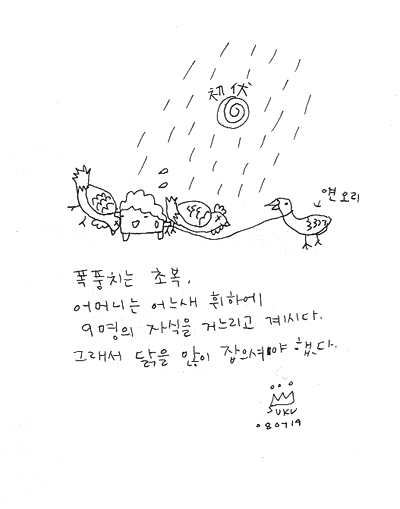 初伏
연오리
폭풍치는 초복,
어머니는 어느새 휘하에
9명의 자식을 거느리고 계시다.
그래서 닭을 많이 잡으셔야 했다.
SUKU
080719